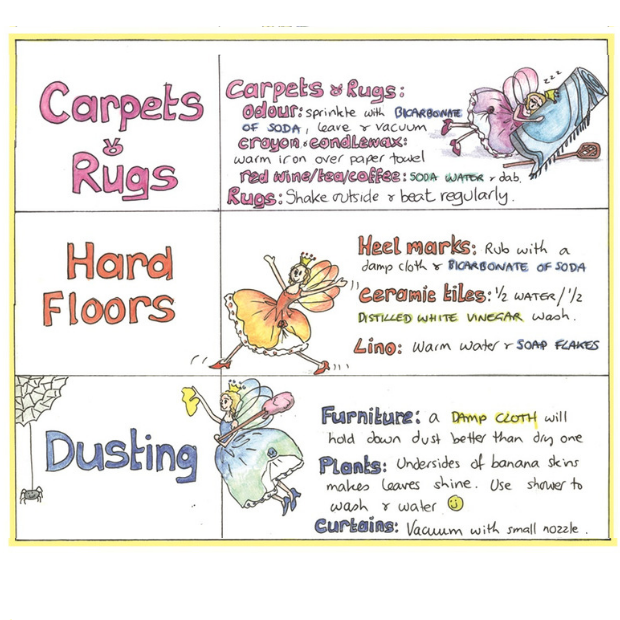 Carpets
&
Rugs
Carpets & Rugs:
odour: sprinkle with BICARBONATE
OF SODA, leave & vacuum
crayon & candlewax:
warm iron over paper towel
red wine/tea/coffee: SODA WATER & dab.
Rugs: Shake outside & beat regularly.
zzz
Hard
Floors
Heel marks: Rub with a
damp cloth & BICARBONATE OF SODA
Ceramic tiles: 1/2 WATER/1/2
DISTILLED WHITE VINEGAR wash.
Lino: Warm water & SOAP FLAKES
Dusting
Furniture: a DAMP CLOTH will
hold down dust better than dry one
Plants: Undersides of banana skins
makes leaves shine. Use shower to
wash & water
Curtains: Vacuum with small nozzle.